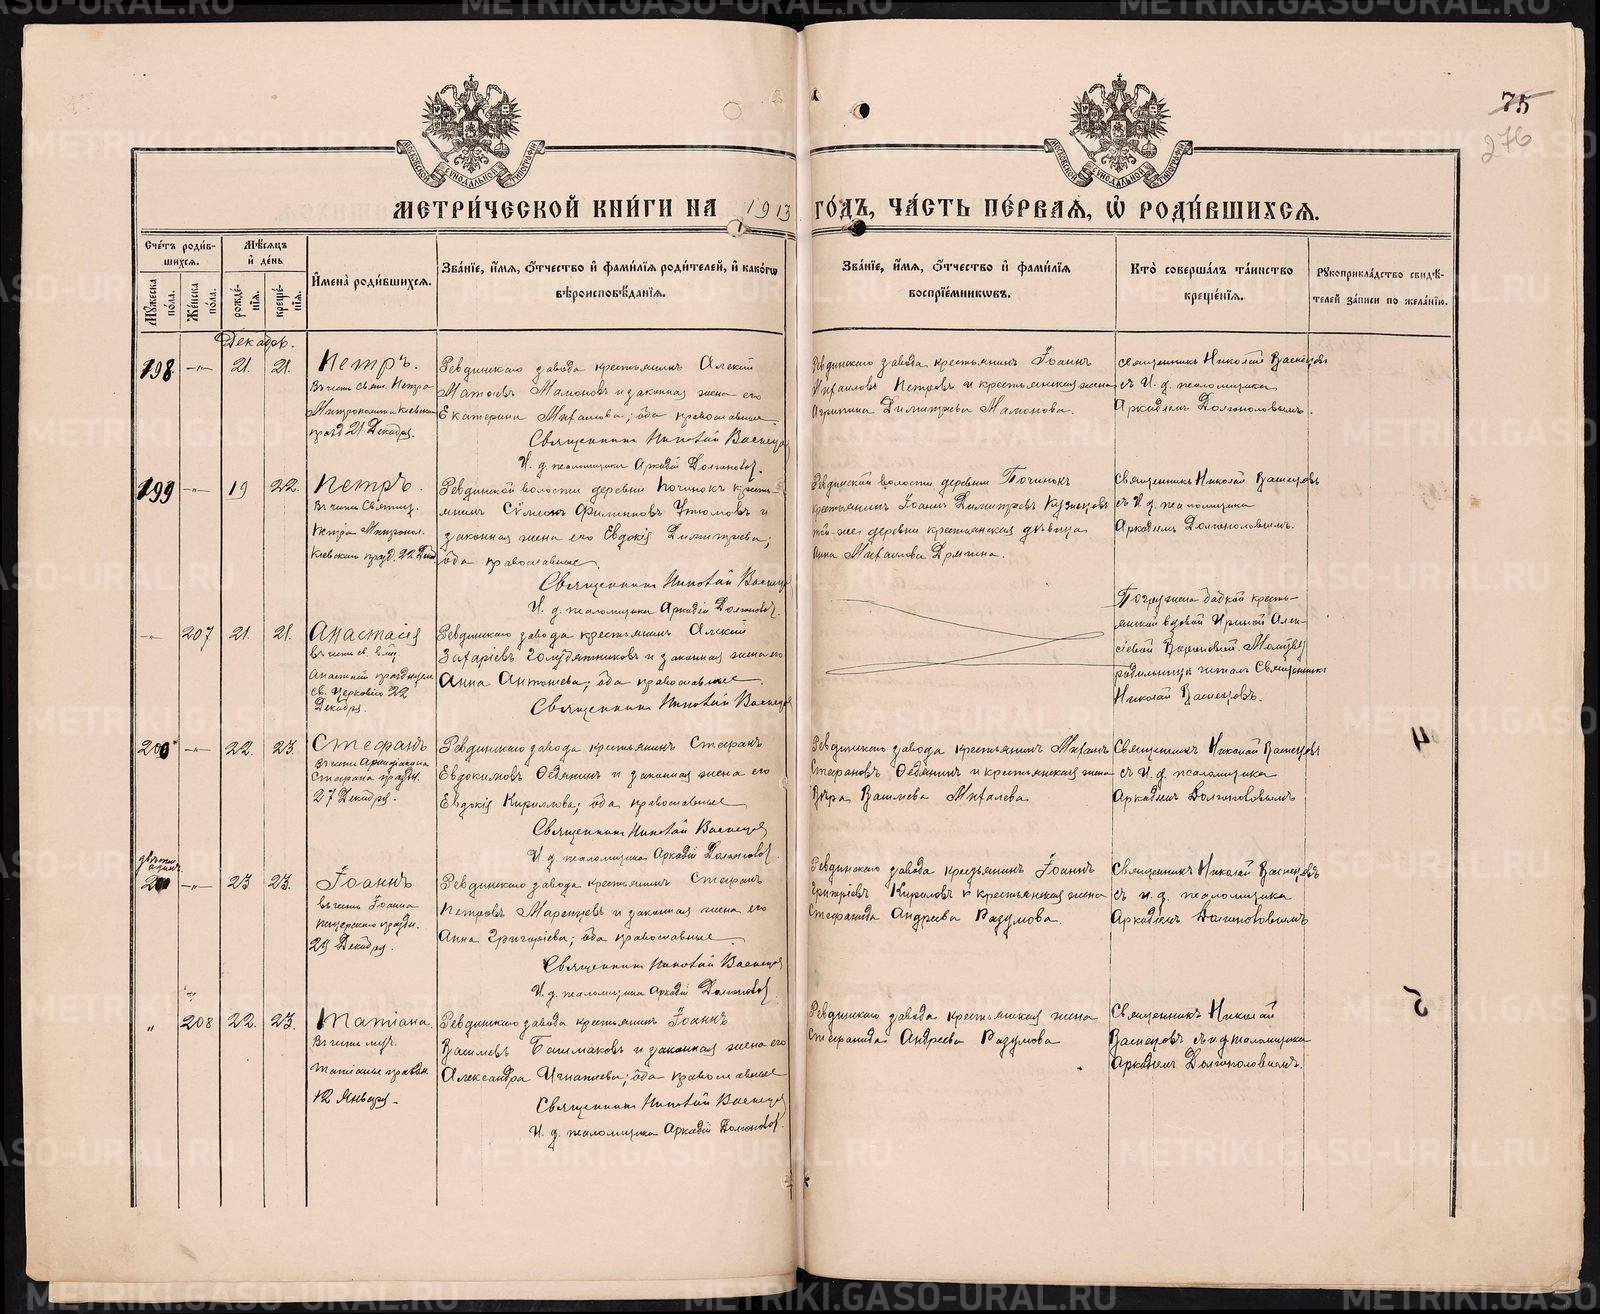 75
276
МЕТРИ́ЧЕСКОЙ КНИ́ГИ НА 1913 ГО́ДЪ, ЧА́СТЬ ПЕ́РВАЯ, Ѡ РОДИ́ВШИХСЯ.
Сче́тъ роди́в-
шихся.
Му́жеска по́ла.
Же́нска по́ла.
Мѣ́сяцъ
и де́нь
рожде́-
нія.
креще́-
нія.
Имена̀ роди́вшихся.
Зва́ніе, и́мя, ѻ́тчество и фами́лія роди́телей, и како́гѡ
вѣроисповѣ́данія.
Зва́ніе, и́мя, ѻ́тчество и фами́лія
воспріе́мниковъ.
Кто̀ соверша́лъ та́инство
креще́нія.
Рꙋкоприкла́дство свидѣ́-
телей за́писи по жела́нію.
Декабрь.
198 —„— 21. 21. Петръ.
Въ честь Свят. Петра
Митрополита Киевскаго
празд 21 Декабря.
Ревдинскаго завода крестьянинъ Алексій
Матѳіевъ Мамоновъ и законная жена его
Екатерина Михаилова; оба православные
Священникъ Николай Васнецовъ
И. д. псаломщика Аркадій Долгополовъ.
Ревдинскаго завода крестьянинъ Іоаннъ
Михаиловъ Петровъ и крестьянская жена
Агрипина Димитріева Мамонова.
Священникъ Николай Васнецовъ
съ И. д. псаломщика
Аркадіемъ Долгополовымъ.
199 —„— 19 22. Петръ.
Въ честь Святит.
Петра Митропол.
Киевскаго празд. 22 Декаб.
Ревдинской волости деревни Починокъ кресть-
янинъ Сѵмеонъ Филипповъ Утюмовъ и
законная жена его Евдокія Димитріева;
оба православные.
Священникъ Николай Васнецовъ
И. д. псаломщика Аркадій Долгополовъ.
Ревдинской волости деревни Починокъ
крестьянинъ Іоаннъ Димитріевъ Кузнецовъ
той-же деревни крестьянская дѣвица
Анна Михаилова Дрягина.
Священникъ Николай Васнецовъ
съ И. д. псаломщика
Аркадіемъ Долгополовымъ.
—„— 207 21. 21. Анастасія
въ честь св. Вмц.
Анастасіи празднуем.
св. Церковію 22
Декабря.
Ревдинскаго завода крестьянинъ Алексій
Захаріевъ Голубятниковъ и законная жена его
Анна Антоніева; оба православные.
Священникъ Николай Васнецовъ
Погружена бабкой кресть-
янской вдовой Ириной Алек-
сіевой. Молитву
родильницѣ читалъ Священникъ
Николай Васнецовъ.
200 —„— 22. 23. Стефанъ
Въ честь Архидіакона
Стефана праздн.
27 Декабря.
Ревдинскаго завода крестьянинъ Стефанъ
Евдокимовъ Ѳедянинъ и законная жена его
Евдокія Кириллова; оба православные
Священникъ Николай Васнецовъ
И. д. псаломщика Аркадій Долгополовъ.
Ревдинскаго завода крестьянинъ Михаилъ
Стефановъ Ѳедянинъ и крестьянская жена
Вѣра Васильева Михалева
Священникъ Николай Васнецовъ
съ И. д. псаломщика
Аркадіемъ Долгополовымъ
двѣсти
одинъ
201 —„— 23 23. Іоаннъ
въ честь Іоанна
печерскаго праздн.
29 Декабря.
Ревдинскаго завода крестьянинъ Стефанъ
Петровъ Маренцевъ и законная жена его
Анна Григоріева; оба православные.
Священникъ Николай Васнецовъ
И. д. псаломщика Аркадій Долгополовъ.
Ревдинскаго завода крестьянинъ Іоаннъ
Кириловъ и крестьянская жена
Стефанида Андреева Разумова.
Священникъ Николай Васнецовъ
съ и. д. псаломщика
Аркадіемъ Долгополовымъ
„ 208 22. 23. Татіана.
Въ честь муч.
Татіаны праздн.
12 Января.
Ревдинскаго завода крестьянинъ Іоаннъ
Васильевъ Башмаковъ и законная жена его
Александра Игнатіева; оба православные
Священникъ Николай Васнецовъ
И. д. псаломщика Аркадій Долгополовъ.
Ревдинскаго завода крестьянская жена
Стефанида Андреева Разумова
Священникъ Николай
Васнецовъ съ и. д. псаломщика
Аркадіемъ Долгополовымъ.
METRIKI.GASO-URAL.RU